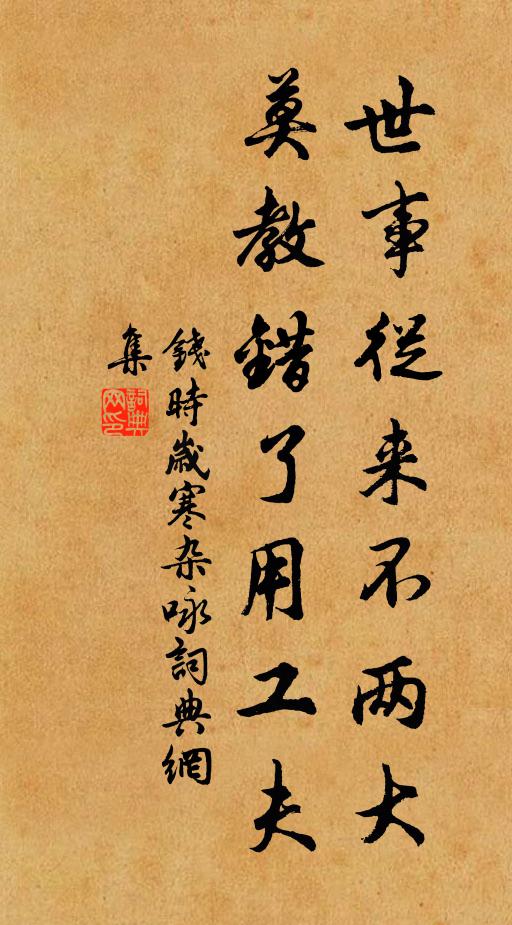 世事從来不两大
莫教錯了用工夫
錢時歲寒杂咏詞典網
集
詞典
网印